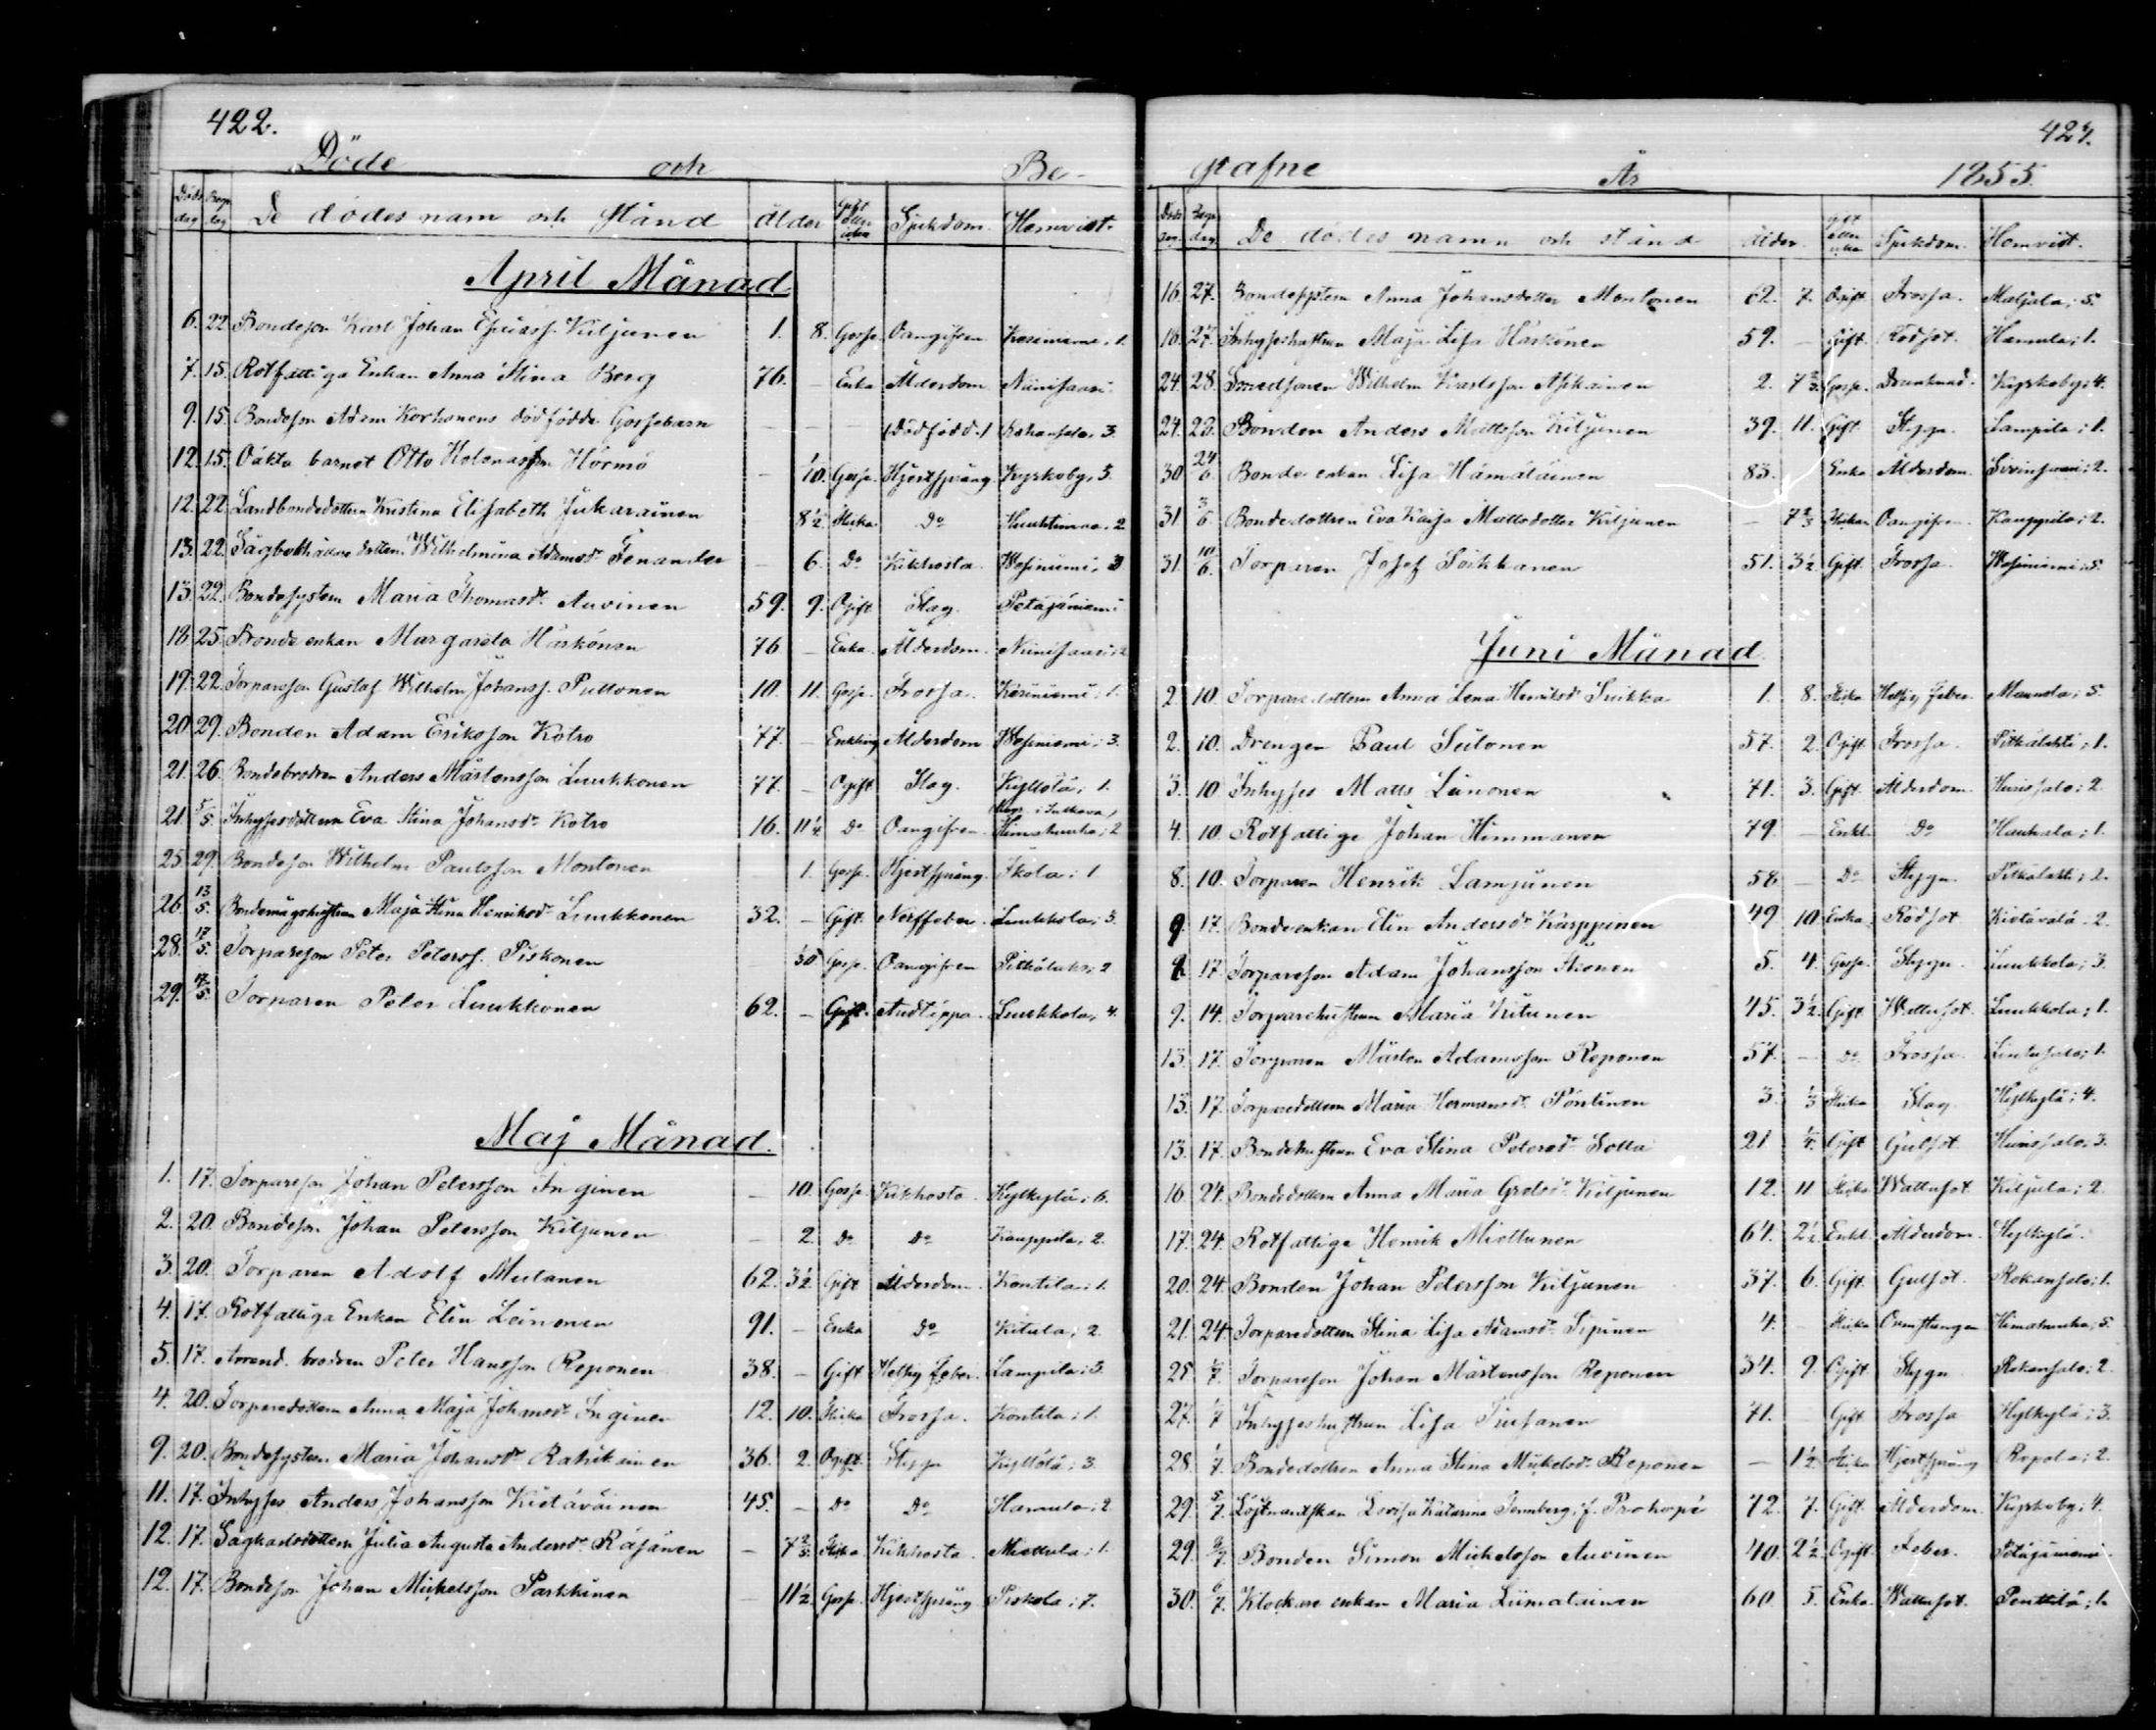 422.
Döde och Be-
Döds dag Begr. dag De dödes nam och stånd ålder gift eller ogift Sjukdom. Hemvist.
April Månad
6. 22 Bondeson Karl Johan Kiljunen 1. 8. Gosse Oangifven Kosiniemi, 1.
7. 15. Rotfattiga Enkan Anna Stina Berg 76. – Enka Ålderdom Niinisaari
9. 15. Bondeson Adam Korhonens dödfödda Gossebarn – – – (Dödfödd.) Rahansalo, 3.
12. 15. Oäkta barnet Otto Hörmö – 1/10. Gosse. Hjertsprång. Kyrkoby, 3.
12. 22. Landbondedottren Kristina Elisabeth Jukarainen – 8½ Flicka Do Huuhtimaa. 2
13. 22. dottern Wilhelmina Adamsdr Fenander – 6. Do Kikhosta. Wesiniemi, 3
13. 22. Bondesystern Maria Thomasdr Auvinen 59. 9. Ogift Slag. Petäjäniemi
18. 25. Bonde enkan Margareta Härkönen 76 – Enka. Ålderdom. Niinisaari: 2
19. 22. Torparson Gustaf Wilhelm Johanss. Puttonen 10. 11. Gosse. Frossa. Kosiniemi; 1.
20 29. Bonden Adam Eriksson Kotro 77. – Enkling Ålderdom Wesiniemi; 3.
21. 26. Bondebrodren Anders Mårtensson Luukkonen 77. – Ogift Slag. Kyllölä; 1.
21. 5/5. Inhysesdottern Eva Stina Johansdr Kotro 16. 11½ Do Oangifven. Himahuuha; 2
25 29. Bondeson Wilhelm Paulsson Montonen – 1. Gosse. Hjertsprång. Ikola: 1
26. 13/5. Bondemågshustrun Maja Stina Henriksdr Luukkonen 32. – Gift Nerffeber. Luukkola; 3.
28. 17/5. Torparson Peter Peterss. Piskonen 1/30 Gosse. Oangifven Pitkälahti; 2
29. 17/5. Torparen Peter Luukkonen 62. – Gift. Andtäppa. Luukkola; 4.
Maj Månad.
1. 17. Torparson Johan Petersson Inginen – 10. Gosse. Kikhosta. Kylkylä; 6.
2. 20. Bondeson Johan Petersson Kiljunen – 2. Do Do Kauppila, 2.
3. 20. Torparen Adolf Mulanen 62. 3½ Gift Ålderdom. Kontila: 1.
4. 17. Rotfattiga Enkan Elin Leinonen 91. – Enka Do Kitula; 2.
5. 17. Arrend. brodren Peter Hansson Reponen 38. – Gift Hetsig feber. Lampila: 3.
4. 20. Torparedottern Anna Maja Johansdr Inginen 12. 10. Flicka Frossa. Kontila: 1.
9. 20. Bondesystern Maria Johansdr Rahikainen 36. 2. Ogift. Stygn Kyllölä; 3.
11. 17. Inhyses Anders Johansson Kietäväinen 45. – Do Do Hamula: 2
12. 17. Sågkarlsdottern Julia Augusta Andersdr Räsänen – 7⅔. Flicka Kikhosta. Miettula; 1.
12. 17. Bondeson Johan Mickelsson Parkkinen – 11½ Gosse. Hjertsprång Piskola; 7.
423.
grafne År 1855.
Döds dag. Begr. dag. De dödes namn och stånd ålder. gift eller ogift Sjukdom. Hemvist.
16. 27. Bondesystern Anna Johansdotter Montonen 62. 7. Ogift Frossa. Matjala; 5.
16. 27. Inhyseshustrun Maja Lisa Härkönen 59. – Gift. Rödsot. Hamula; 1.
24. 28. Smedsonen Wilhelm Karlsson Askainen 2. 7⅔ Gosse. Drunknad. Kyrkoby: 4.
24. 28. Bonden Anders Mattsson Kiljunen 39. 11. Gift. Stygn. Lampila; 1.
30 24/6. Bonde enkan Lisa Hämäläinen 83. Enka Ålderdom. 2.
31 3/6. Bondedottren Eva Kaisa Mattsdotter Kiljunen – 7⅔ Flicka. Oangifven. Kauppila; 2.
31. 10/6. Torparen Josef Sorkkanen 51. 3½ Gift. Frossa. Wesiniemi; 5.
Juni Månad
2. 10. Torparedottern Anna Lena Henriksdr Suikka 1. 8. Flicka Hetsig feber Maunola; 5.
2. 10. Drengen Paul Siitonen 57. 2. Ogift Frossa. Pitkälahti; 1.
3. 10 Inhyses Matts Liinonen 71. 3. Gift. Ålderdom. Hurissalo; 2
4. 10. Rotfattige Johan Himmanen 79 – Enkl. Do Haukala; 1.
8. 10. Torparen Henrik Lamjunen 58 – Do Stygn. Pitkälahti; 2.
9. 17. Bondeenkan Elin Andersdr Karppinen 49 10 Enka. Rödsot Kietävälä. 2.
9. 17 Torparson Adam Johansson Ikonen 5. 4. Gosse. Stygn. Luukkola; 3.
9. 14. Torparehustrun Maria Kitunen 45. 3½. Gift Wattusot. Luukkola; 1.
13. 17. Torparen Mårten Adamsson Reponen 57. – Do Frossa. Lintusalo; 1.
13. 17. Torparedottern Maria Hermansdr Pöntinen 3. ⅓ Flicka Slag. Hylkylä; 4.
13. 17. Bondehustrun Eva Stina Petersdr Sotta 21 ¼. Gift Gulsot. Hurissalo; 3.
16. 24. Bondedottern Anna Maria Grelsdr Kiljunen 12. 11 Flicka Wattusot Kiljula; 2
17. 24. Rotfattige Henrik Miettunen 64. 2½ Enkl. Ålderdom. Hylkylä.
20. 24. Bonden Johan Petersson Kiljunen 37. 6. Gift. Gulsot. Rokansalo; 1.
21. 24. Torparedottern Stina Lisa Adamsdr Sipinen 4. Flicka Ormstungen Himahuuha; 5.
25. 1/7. Torparson Johan Mårtensson Reponen 34. 9. Ogift Stygn Rokansalo; 2
27. 1/7 Inhyseshustrun Lisa Tiusanen 71. – Gift Frossa Hylkylä; 3.
28. 1/7. Bondedottren Anna Stina Mickelsdr Reponen – 1½ Flicka Hjertsprång Repola; 2.
29. 5/7. Löjtnantskan Lovisa Katarina Tennberg, f. Prokopé 72. 7. Gift Ålderdom. Kyrkoby; 4.
29. 9/7. Bonden Simon Mickelsson Auvinen 40. 2½ Ogift. Feber. Petäjäniemi
30. 6/7. Klockare enkan Maria Liimatainen 60 5. Enka. Wattusot. Penttilä; 1.